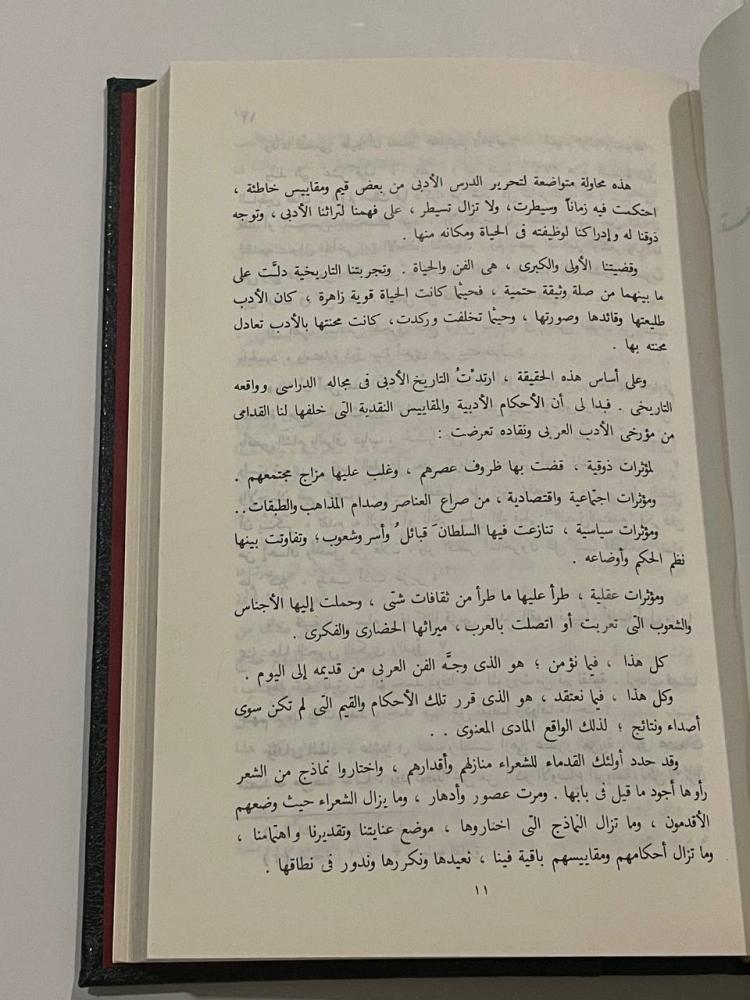 هذه محاولة متواضعة لتحرير الدرس الأدبى من بعض قيم ومقاييس خاطئة ،
احتكمت فيه زماناً وسيطرت، ولا تزال تسيطر ، على فهمنا لتراثنا الأدبى ، وتوجه
ذوقنا له وإدراكنا لوظيفته فى الحياة ومكانه منها .
وقضيتنا الأولى والكبرى ، هى الفن والحياة . وتجربتنا التاريخية دلَّت على
ما بينهما من صلة وثيقة حتمية ، فحيثما كانت الحياة قوية زاهرة ، كان الأدب
طليعتها وقائدها وصورتها ، وحيثما تخلفت وركدت، كانت محنتها بالأدب تعادل
محنته بها .
وعلى أساس هذه الحقيقة ، ارتدْتُ التاريخ الأدبى فى مجاله الدراسى وواقعه
التاريخى . فبدا لى أن الأحكام الأدبية والمقاييس النقدية التى خلفها لنا القدامى
من مؤرخى الأدب العربى ونقاده تعرضت :
لمؤثرات ذوقية ، قضت بها ظروف عصرهم ، وغلب عليها مزاج مجتمعهم .
ومؤثرات اجتماعية واقتصادية ، من صراع العناصر وصدام المذاهب والطبقات..
ومؤثرات سياسية ، تنازعت فيها السلطانَ قبائلُ وأسر وشعوب؛ وتفاوتت بينها
نظم الحكم وأوضاعه .
ومؤثرات عقلية ، طرأ عليها ما طرأ من ثقافات شتى ، وحملت إليها الأجناس
والشعوب التى تعربت أو اتصلت بالعرب، ميراثها الحضارى والفكرى .
كل هذا ، فيما نؤمن ؛ هو الذى وجَّه الفن العربى من قديمه إلى اليوم .
وكل هذا ، فيما نعتقد ، هو الذى قرر تلك الأحكام والقيم التى لم تكن سوى
أصداء ونتائج ؛ لذلك الواقع المادى المعنوى . .
وقد حدد أولئك القدماء للشعراء منازلهم وأقدارهم ، واختاروا نماذج من الشعر
رأوها أجود ما قيل فى بابها . ومرت عصور وأدهار ، وما يزال الشعراء حيث وضعهم
الأقدمون ، وما تزال النماذج التى اختاروها ، موضع عنايتنا وتقديرنا واهتمامنا ،
وما تزال أحكامهم ومقاييسهم باقية فينا ، نعيدها ونكررها وندور فى نطاقها .
١١